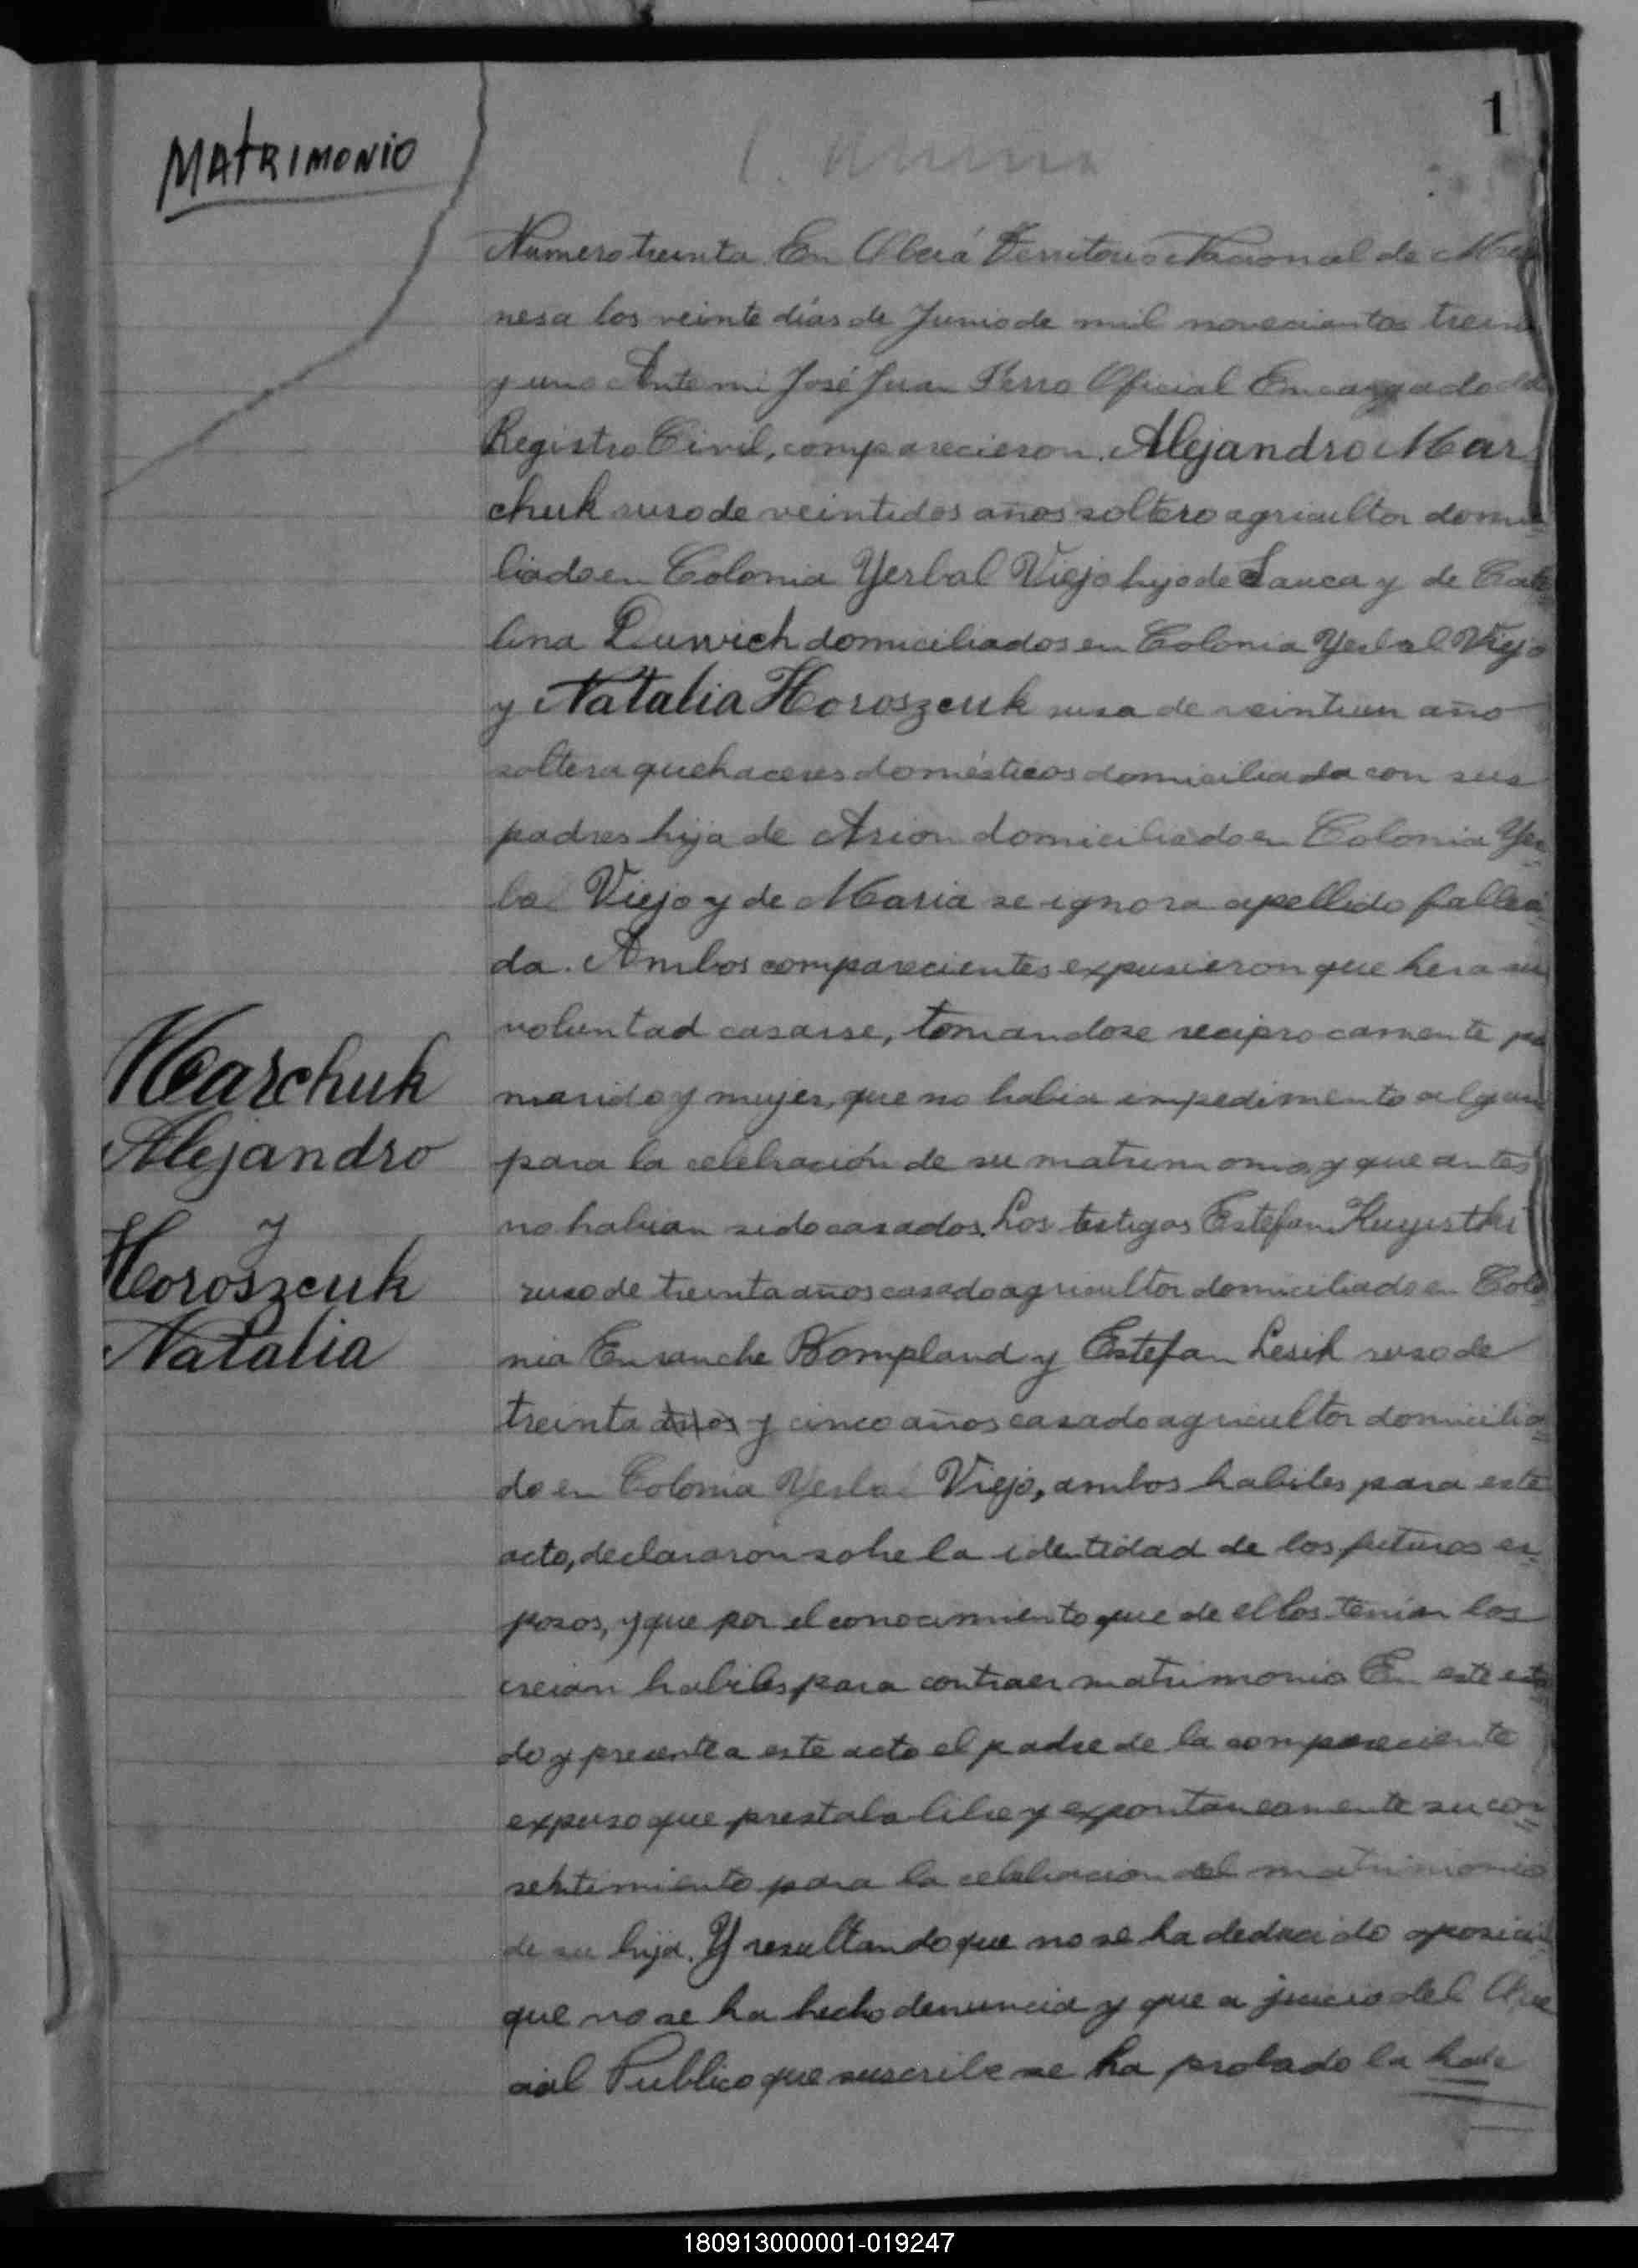 1
MATRIMONIO
Numero treinta. En Oberá Territorio Nacional de
nes a los veinte días de Junio de mil novecientos trein
y uno Ante mi José Juan Oficial Encargado del
Registro Civil, comparecieron. Alejandro Mar
chuk ruso de veintidos años soltero agricultor domi
liado en Colonia Yerbal Viejo hijo de y de Cata
lina domiciliados en Colonia Yerbal Viejo
y Natalia Horoszcuk rusa de veintiun año
soltera quehaceres domésticos domiciliada con sus
padres hija de domiciliado en Colonia Yer
bal Viejo y de Maria se ignora apellido falleci
da. Ambos comparecientes expusieron que hera su
voluntad casarse, tomandose reciprocamente po
marido y mujer, que no habia impedimento algun
para la celebración de su matrimonio, y que antes
no habian sido casados. Los testigos Estefan
ruso de treinta años casado agricultor domiciliado en Colo
nia Ensanche Bompland y Estefan Lesik ruso de
treinta años y cinco años casado agricultor domicilia
do en Colonia Yerbal Viejo, ambos habiles para este
acto, declararon sobre la identidad de los futuros es
posos, y que por el conocimiento que de ellos tenian los
creian habiles para contraer matrimonio En este esta
do y presente a este acto el padre de la compareciente
expuso que prestaba libre y expontaneamente su con
sentimiento para la celebracion del matrimonio
de su hija. Y resultando que no se ha deducido oposici
que no se ha hecho denuncia y que a juicio del
cial Publico que suscribe se ha probado la
Marchuk
Alejandro
y
Horoszcuk
Natalia
180913000001-019247